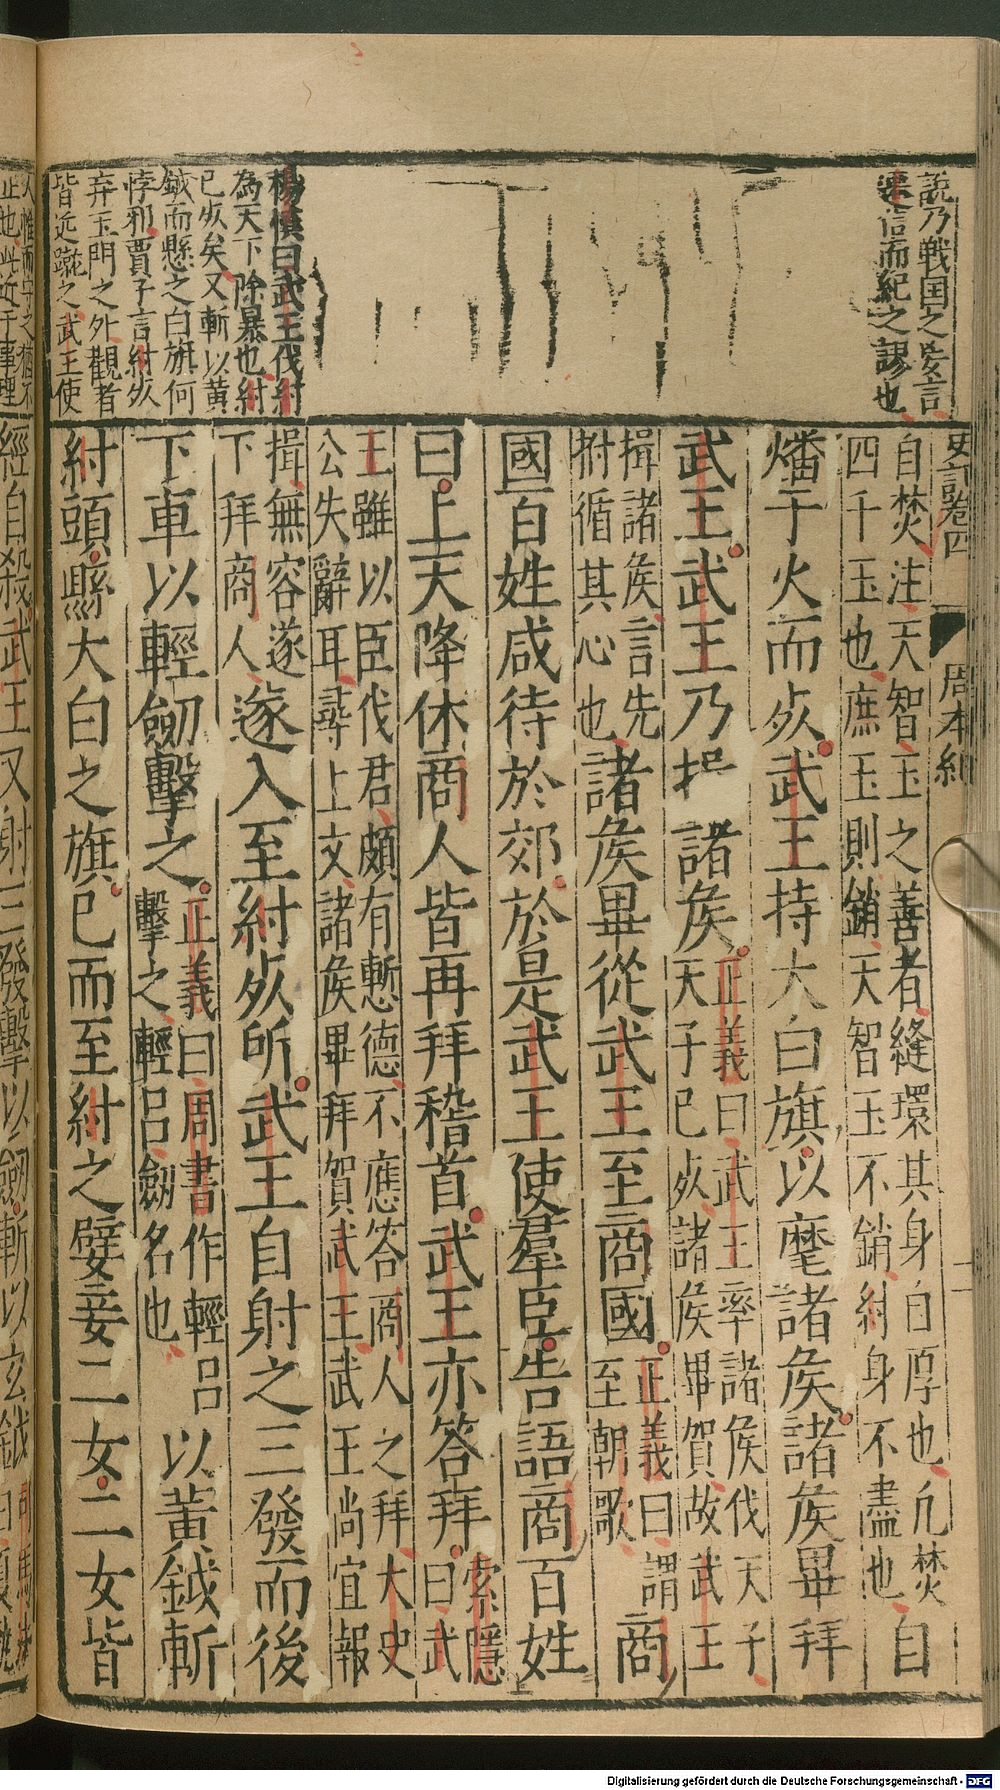 說乃戰国之妄言
遷信而紀之謬也
楊慎曰武王伐紂
為天下除暴也紂
已㱙矣又斬以黄
鉞而懸之白旗何
悖邪賈子言紂㱙
弃玉門之外觀者
皆近蹴之武王使
史記卷四 周本紀
自焚注天智玉之善者縫環其身自厚也凡焚
四千玉也庶玉則銷天智玉不銷紂身不盡也
自
燔于火而㱙武王持大白旗以麾諸矦諸矦畢拜
武王武王乃揖諸矦
正義曰武王率諸矦伐天子
天子已㱙諸矦畢賀故武王
揖諸矦言先
拊循其心也
諸矦畢從武王至商國
正義曰謂
至朝歌
商
國百姓咸待於郊於是武王使羣臣告語商百姓
曰上天降休商人皆再拜稽首武王亦答拜
索隱
曰武
王雖以臣伐君頗有慙德不應答商人之拜大史
公失辭耳尋上文諸矦畢拜賀武王武王尚宜報
揖無容遂
下拜商人
遂入至紂㱙所武王自射之三發而後
下車以輕劒擊之
正義曰周書作輕呂
擊之輕呂劒名也
以黄鉞斬
紂頭縣大白之旗已而至紂之嬖妾二女二女皆
經自殺武王又射三發擊以劒斬以玄鉞
Digitalisierung gefördert durch die Deutsche Forschungsgemeinschaft - DFG